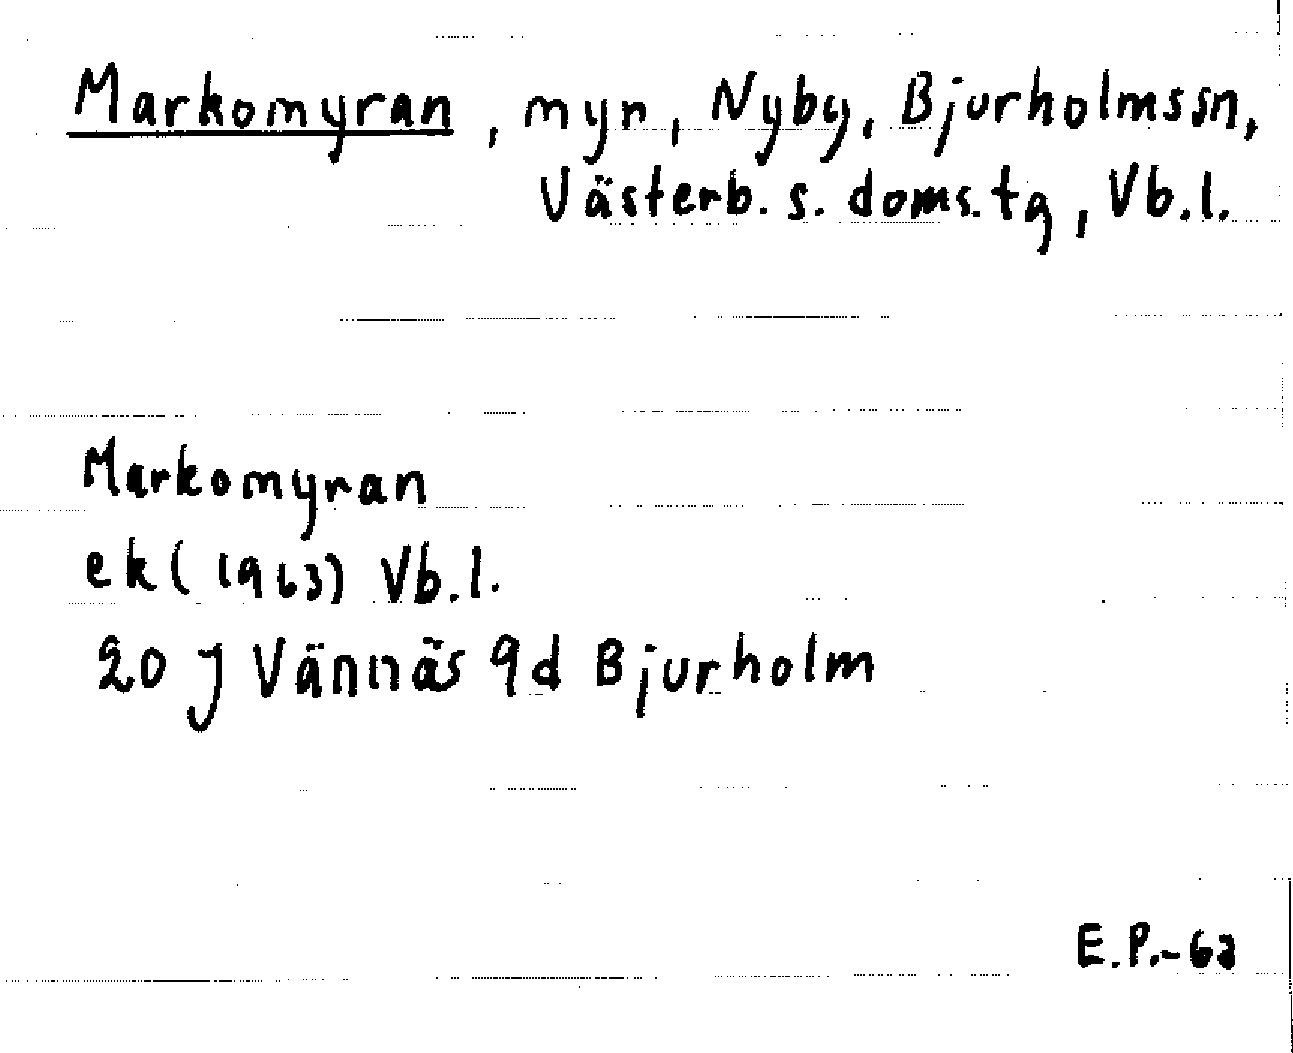 Markomyran, myr, Nyby, Bjurholmssn,
Västerb. s. doms.tg, Vb.l.
Markomyran
ek (1963) Vb.l.
20 J Vännäs 9d Bjurholm
E.P.-63